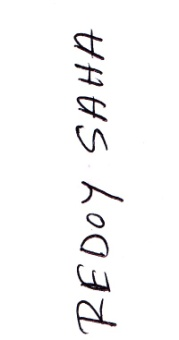 REDOY SAHA